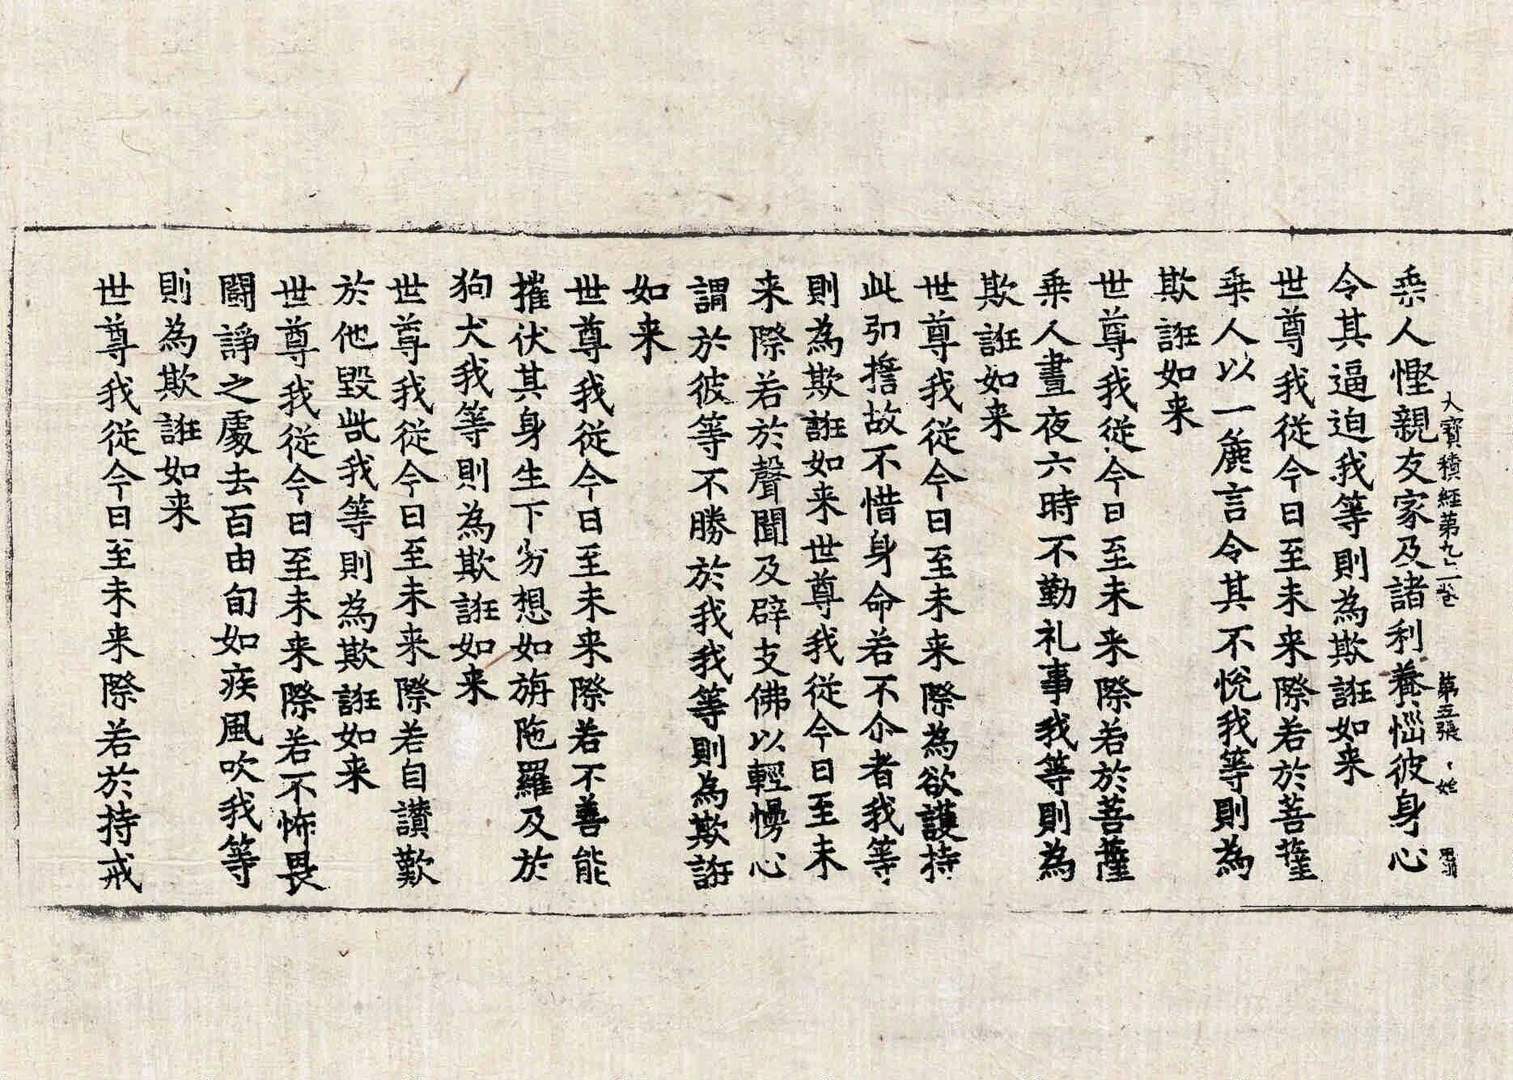 大寶積經第九十一卷 第五張 始
乗人慳親友家及諸利養惱彼身心
令其逼迫我等則為欺誑如来
世尊我従今日至未来際若於菩薩
乗人以一麁言令其不恱我等則為
欺誑如来
世尊我従今日至未来際若於菩薩
乗人晝夜六時不勤礼事我等則為
欺誑如来
世尊我従今日至未来際為欲護持
此弘擔故不惜身命若不尒者我等
則為欺誑如来世尊我従今日至未
来際若於聲聞及辟支佛以輕慢心
謂於彼等不勝於我我等則為欺誑
如来
世尊我従今日至未来際若不善能
摧伏其身生下劣想如旃陁羅及於
狗犬我等則為欺誑如来
世尊我従今日至未来際若自讃歎
於他毀呰我等則為欺誑如来
世尊我従今日至未来際若不怖畏
鬪諍之處去百由旬如疾風吹我等
則為欺誑如来
世尊我従今日至未来際若於持戒